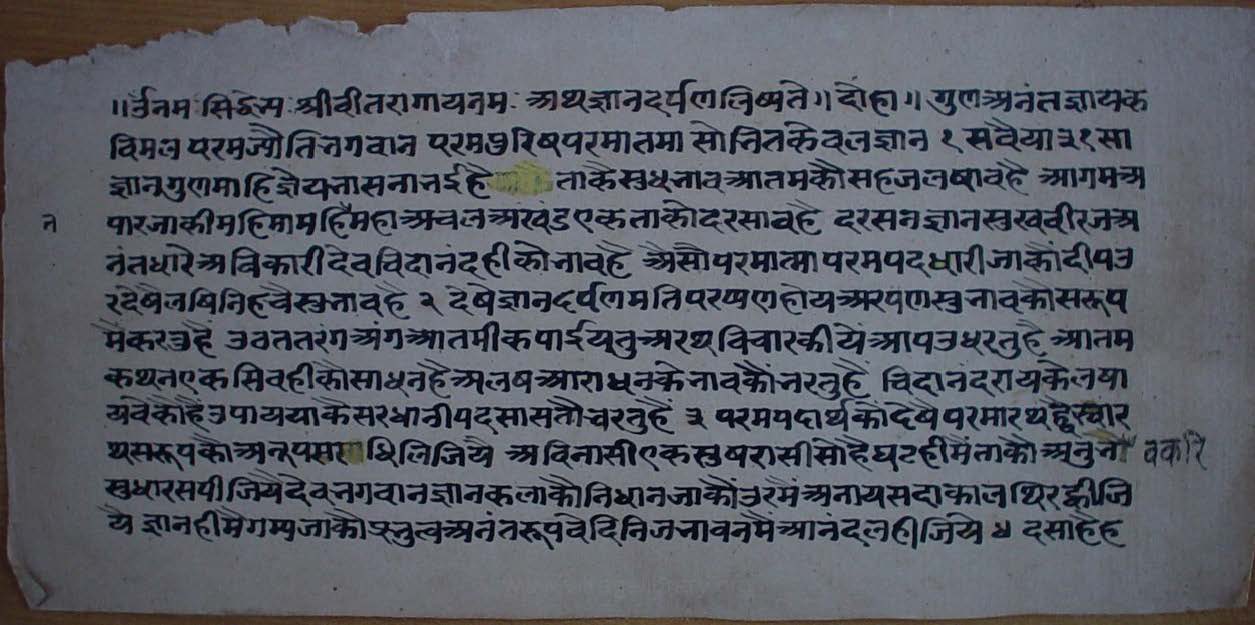 ॥ उँनमः सिद्धेभ्यः श्रीवीतरागायनमः अथज्ञानदर्पणलिष्यते॥ दोहा॥ गुणअनंतज्ञायक
विमल परमज्यौतिभगवान परमपुरिषपरमातमा सोभितकेवलज्ञान १ सवैया ३१सा
ज्ञानगुणमाहिज्ञेयभासनाभईहै ताकैसुधभावआतमकौसहजलषावहै आगमअ
पारजाकीमहिमामहिमैमहाअचलअखंडएकताकोदरसावहै दरसनज्ञानसुखवीरजअ
नंतधारैअविकारीदेवचिदानंदहीकोभावहै अैसौपरमात्मापरमपदधारीजाकौंदीपउ
रदेषैलषिनिहचैसुभावहै २ देषेज्ञानदर्पणमतिपरषणहोयअरपणसुभावकौसरूप
मैंकरउहैं उवततरंगअंगआतमीकपाईयतुअरथविचारकीयैंआपउधरतुहै आतम
कथनएकसिवहीकौसाधनहैअलषआराधनकेभावकौंभरतुहै चिदानंदरायकेलषा
यवेकौहैउपाययाकैसरधानीपदसासतौंचरतुहै ३ परमपदार्थकौंदेषैपरमारथह्वैस्वार
थसरूपकौअनूपस धिलिजियै अविनासीएकसुषरासीसोहैघटहीमैंताकौअनुभौ
सुधारसपीजियैदेवभगवानज्ञानकलाकौनिधानजाकौंउरमैंअनायसदाकालथिरकीजि
यै ज्ञानहीमैगम्यजाकौप्रभुत्वअनंतरूपवेदिनिजभावनमैंआनंदलहीजिये ४ दसाहैह